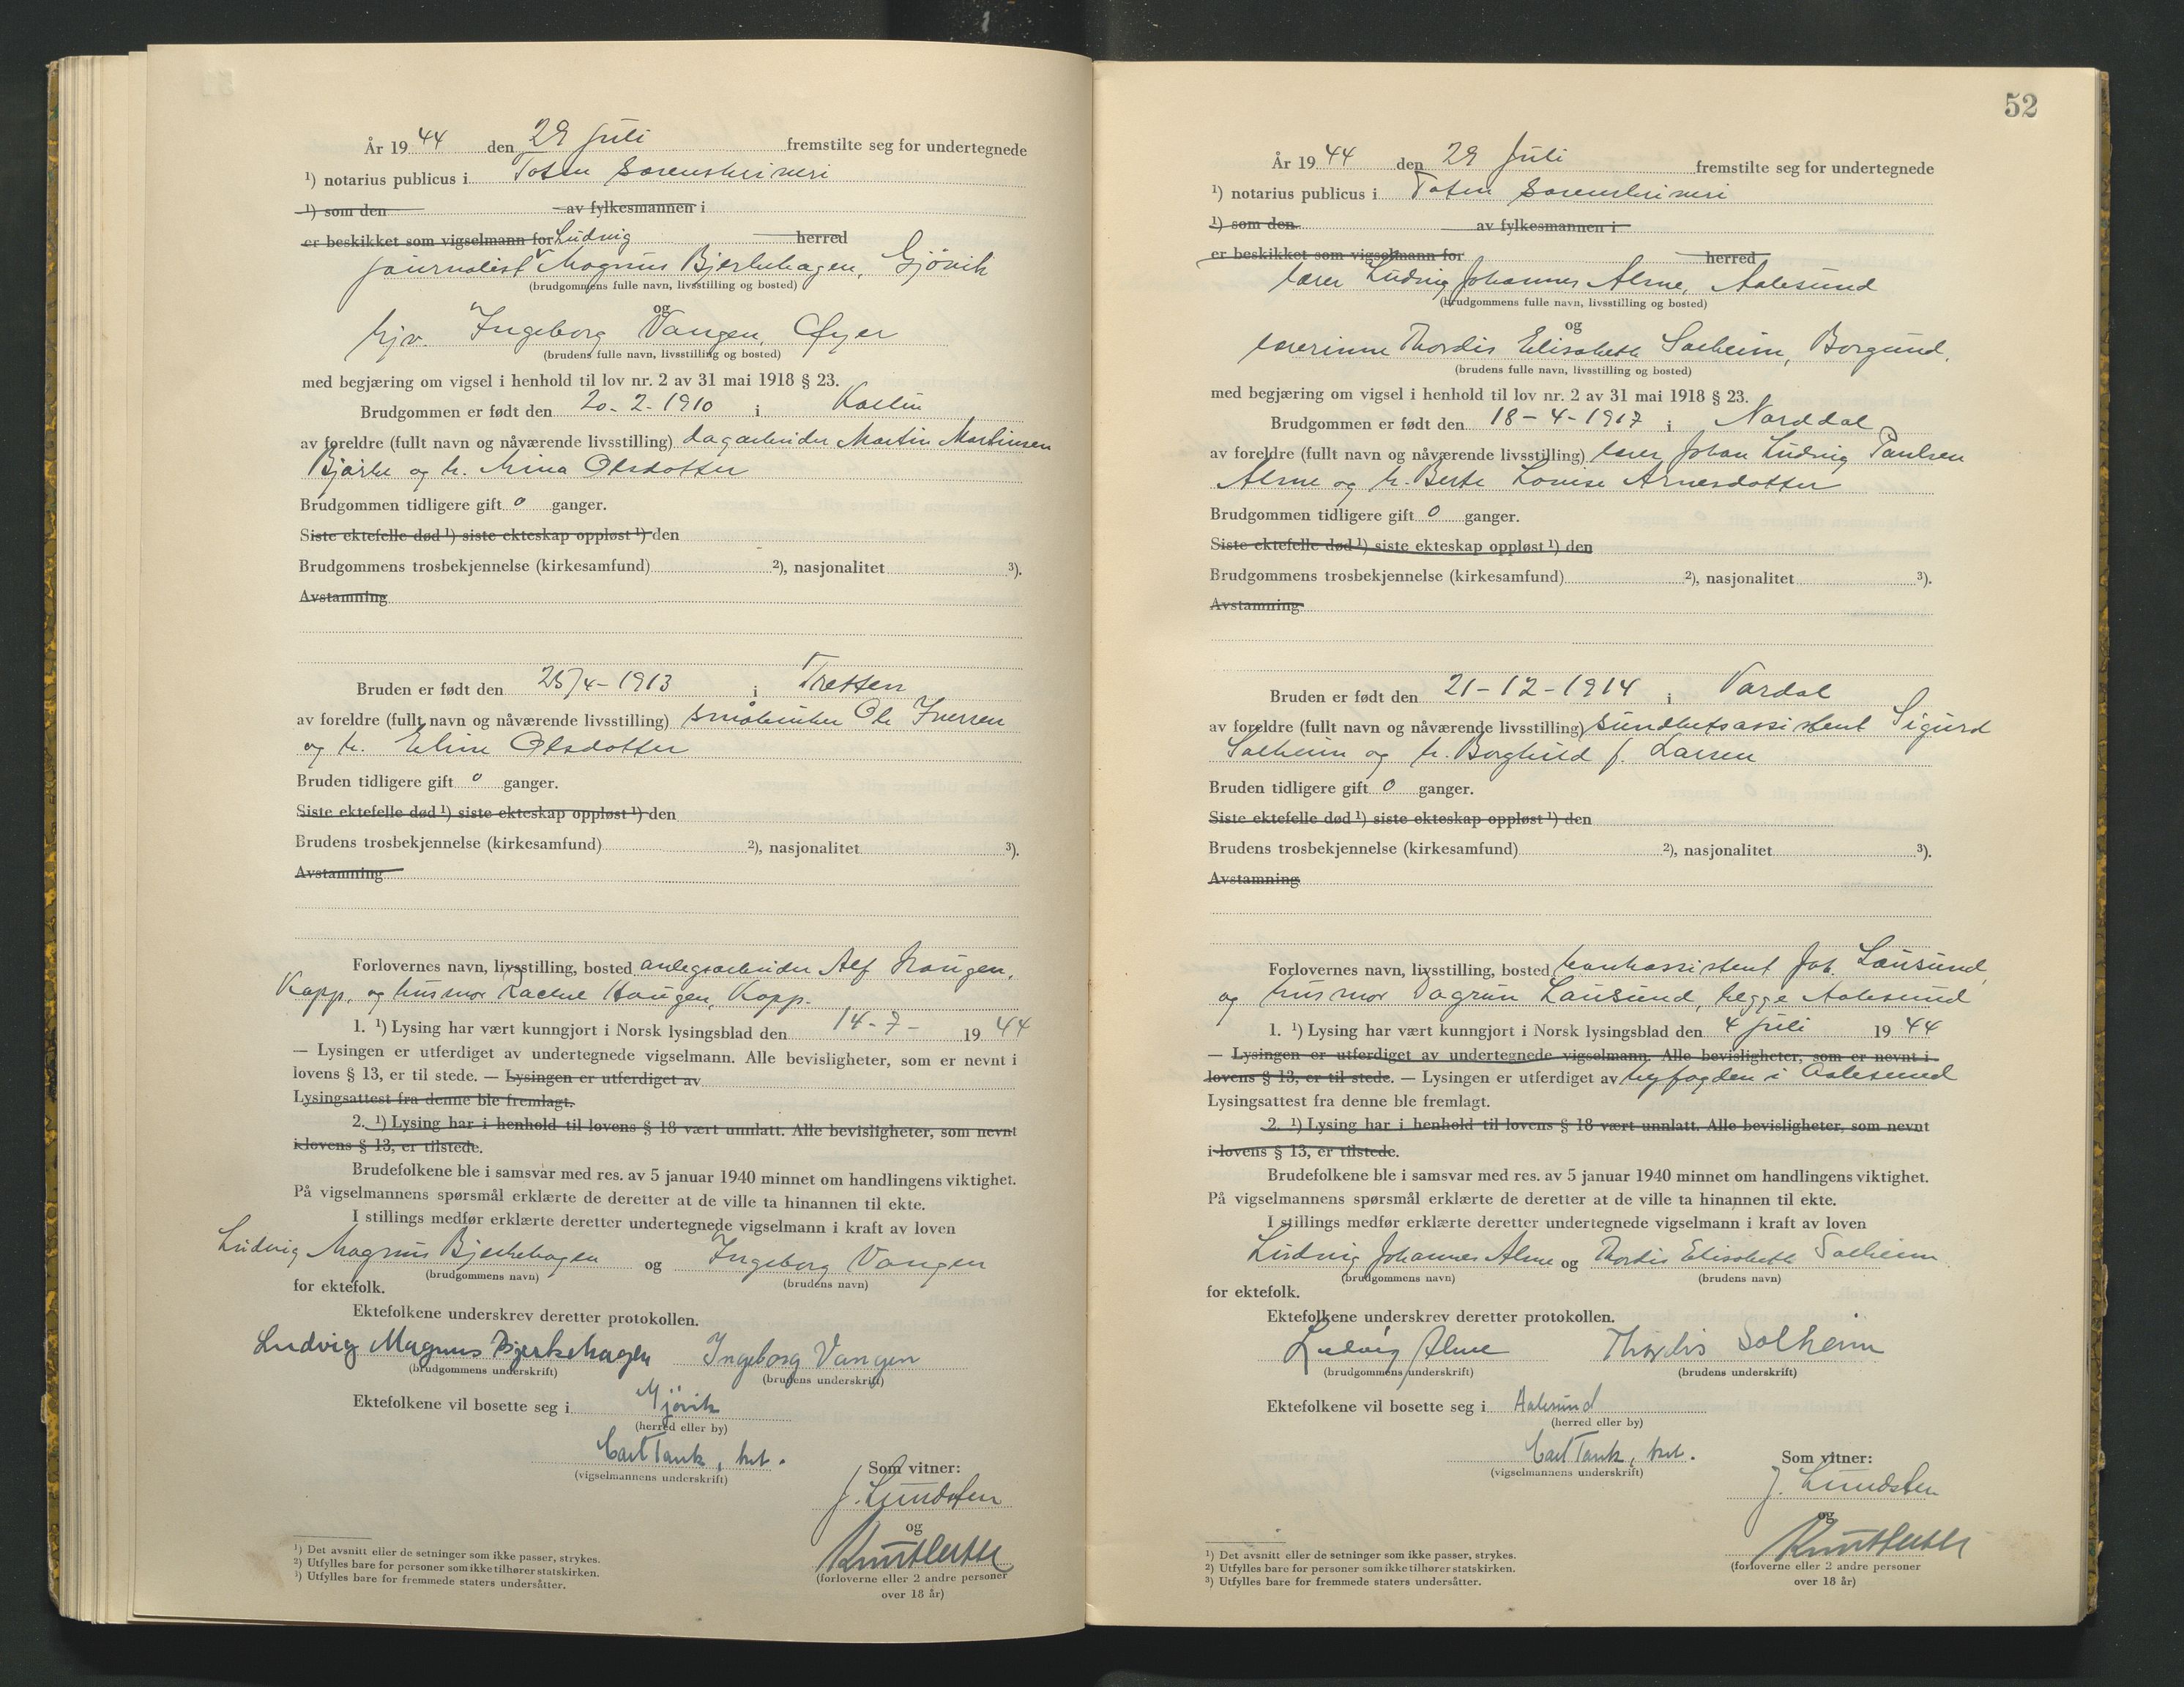 År 1944 den 29 juli fremstilte seg for undertegnede
1) notarius publicus i Toten sorenskriveri
1) som den av fylkesmannen i
er beskikket som vigselmann for Ludvig herred
journalist Magnus Bjerkehagen, Gjövik
(brudgommens fulle navn, livsstilling og bosted)
og
hjv. Ingeborg Vangen, Øyer
(brudens fulle navn, livsstilling og bosted)
med begjæring om vigsel i henhold til lov nr. 2 av 31 mai 1918 § 23.
Brudgommen er født den 20-2-1910 i Kolbu
av foreldre (fullt navn og nåværende livsstilling) dagarbeider Martin Martinsen
Bjørke og h. Mina Olsdotter
Brudgommen tidligere gift 0 ganger.
Siste ektefelle død 1) siste ekteskap oppløst 1) den
Brudgommens trosbekjennelse (kirkesamfund) 2), nasjonalitet 3).
Avstamning
Bruden er født den 25/4-1913 i Tretten
av foreldre (fullt navn og nåværende livsstilling) småbruker Ole
og h. Eline Olsdotter
Bruden tidligere gift 0 ganger.
Siste ektefelle død 1) siste ekteskap oppløst 1) den
Brudens trosbekjennelse (kirkesamfund) 2), nasjonalitet 3).
Avstamning
Forlovernes navn, livsstilling, bosted anlegsarbeider Alf Haugen,
Kapp, og husmor Rachel Haugen, Kapp.
1. 1) Lysing har vært kunngjort i Norsk lysingsblad den 14-7- 1944
— Lysingen er utferdiget av undertegnede vigselmann. Alle bevisligheter, som er nevnt i
lovens § 13, er til stede. — Lysingen er utferdiget av
Lysingsattest fra denne ble fremlagt.
2. 1) Lysing har i henhold til lovens § 18 vært unnlatt. Alle bevisligheter, som nevnt
i lovens § 13, er tilstede.
Brudefolkene ble i samsvar med res. av 5 januar 1940 minnet om handlingens viktighet.
På vigselmannens spørsmål erklærte de deretter at de ville ta hinannen til ekte.
I stillings medfør erklærte deretter undertegnede vigselmann i kraft av loven
Ludvig Magnus Bjerkehagen og Ingeborg Vangen
(brudgommens navn) (brudens navn)
for ektefolk.
Ektefolkene underskrev deretter protokollen.
Ludvig Magnus Bjerkehagen Ingeborg Vangen
(brudgommens underskrift) (brudens underskrift)
Ektefolkene vil bosette seg i Gjövik
(herred eller by)
Carl Tank, kst.
(vigselmannens underskrift)
Som vitner:
J. Lundsten
og
(forloverne eller 2 andre personer
over 18 år)
1) Det avsnitt eller de setninger som ikke passer, strykes.
2) Utfylles bare for personer som ikke tilhører statskirken.
3) Utfylles bare for fremmede staters undersåtter.
52
År 1944 den 29 juli fremstilte seg for undertegnede
1) notarius publicus i Toten sorenskriveri
1) som den av fylkesmannen i
er beskikket som vigselmann for herred
lærer Ludvig Johannes Alme, Aalesund
(brudgommens fulle navn, livsstilling og bosted)
og
lærerinne Thordis Elisabeth Solheim, Borgund.
(brudens fulle navn, livsstilling og bosted)
med begjæring om vigsel i henhold til lov nr. 2 av 31 mai 1918 § 23.
Brudgommen er født den 18-4-1917 i Norddal
av foreldre (fullt navn og nåværende livsstilling) lærer Johan Ludvig Paulsen
Alme og h. Berte Louise Arnesdotter
Brudgommen tidligere gift 0 ganger.
Siste ektefelle død 1) siste ekteskap oppløst 1) den
Brudgommens trosbekjennelse (kirkesamfund) 2), nasjonalitet 3).
Avstamning
Bruden er født den 21-12-1914 i Vardal
av foreldre (fullt navn og nåværende livsstilling) sundhetsassistent Sigurd
Solheim og h. Borghild f. Larsen
Bruden tidligere gift 0 ganger.
Siste ektefelle død 1) siste ekteskap oppløst 1) den
Brudens trosbekjennelse (kirkesamfund) 2), nasjonalitet 3).
Avstamning
Forlovernes navn, livsstilling, bosted bankassistent Joh. Lausund,
og husmor Dagrun Lausund, begge Aalesund
1. 1) Lysing har vært kunngjort i Norsk lysingsblad den 4 juli 1944
— Lysingen er utferdiget av undertegnede vigselmann. Alle bevisligheter, som er nevnt i
lovens § 13, er til stede. — Lysingen er utferdiget av byfogden i Aalesund
Lysingsattest fra denne ble fremlagt.
2. 1) Lysing har i henhold til lovens § 18 vært unnlatt. Alle bevisligheter, som nevnt
i lovens § 13, er tilstede.
Brudefolkene ble i samsvar med res. av 5 januar 1940 minnet om handlingens viktighet.
På vigselmannens spørsmål erklærte de deretter at de ville ta hinannen til ekte.
I stillings medfør erklærte deretter undertegnede vigselmann i kraft av loven
Ludvig Johannes Alme og Thordis Elisabeth Solheim
(brudgommens navn) (brudens navn)
for ektefolk.
Ektefolkene underskrev deretter protokollen.
Ludvig Alme Thordis Solheim
(brudgommens underskrift) (brudens underskrift)
Ektefolkene vil bosette seg i Aalesund
(herred eller by)
Carl Tank, kst.
(vigselmannens underskrift)
Som vitner:
J. Lundsten
og
(forloverne eller 2 andre personer
over 18 år)
1) Det avsnitt eller de setninger som ikke passer, strykes.
2) Utfylles bare for personer som ikke tilhører statskirken.
3) Utfylles bare for fremmede staters undersåtter.